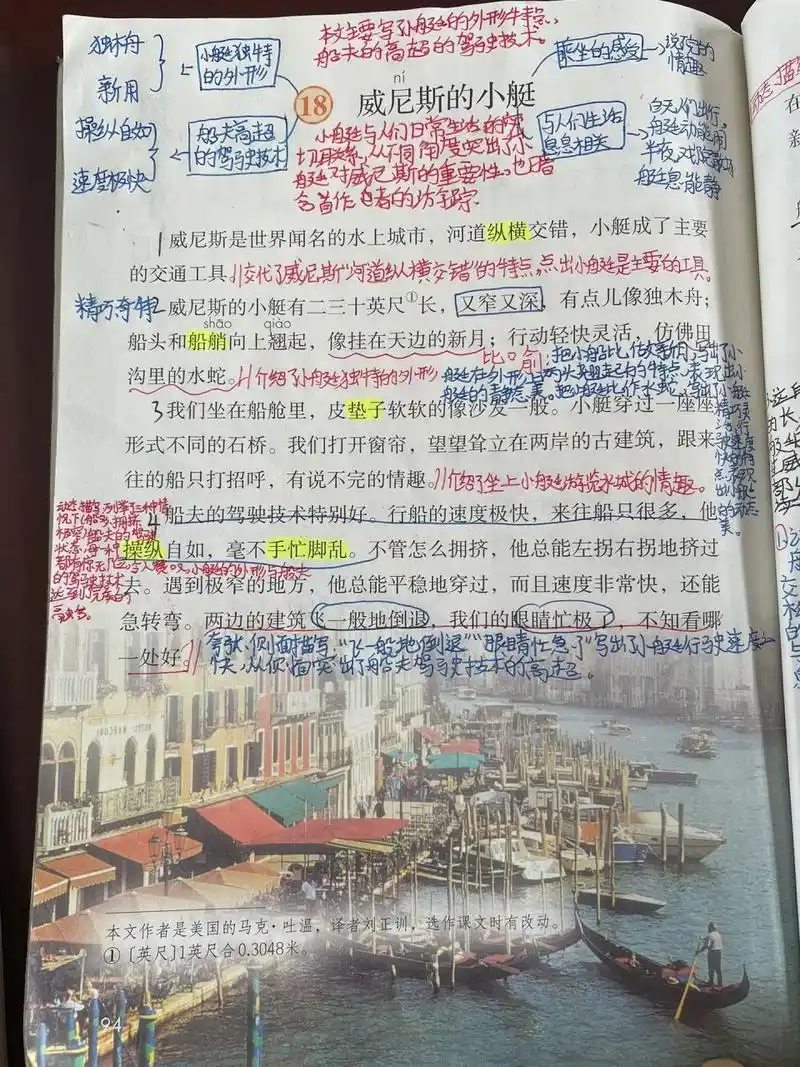 本文主要写了小艇的外形特点、
船夫的高超的驾驶技术。
独木舟
新用
小艇独特
的外形
操纵自如
速度极快
船夫高超
的驾驶技术
乘坐的感受
说说的
情趣
与人们生活
息息相关
白天人们出行,
艇动
半夜
艇息 静
ní
18 威尼斯的小艇
小艇与人们日常生活的密
切关系,从不同角度突出了小
艇对威尼斯的重要性。也
含
1 威尼斯是世界闻名的水上城市,河道纵横交错,小艇成了主要
的交通工具。//交代了威尼斯“河道纵横交错”的特点,点出小艇是主要的工具。
精巧奇特
2 威尼斯的小艇有二三十英尺①长,又窄又深,有点儿像独木舟;
shāo qiào
船头和船艄向上翘起,像挂在天边的新月;行动轻快灵活,仿佛田
沟里的水蛇。//介绍了小艇独特的外形
比喻:把小艇比作新月,写出了小
艇在外形上两头翘起的特点,表现出小
艇的静态美。把小艇比作水蛇,写出小艇
3 我们坐在船舱里,皮垫子软软的像沙发一般。小艇穿过一座座
形式不同的石桥。我们打开窗帘,望望耸立在两岸的古建筑,跟来
往的船只打招呼,有说不完的情趣。//介绍了坐上小艇游览水城的情趣。
4 船夫的驾驶技术特别好。行船的速度极快,来往船只很多,他
操纵自如,毫不手忙脚乱。不管怎么拥挤,他总能左拐右拐地挤过
去。遇到极窄的地方,他总能平稳地穿过,而且速度非常快,还能
急转弯。两边的建筑飞一般地倒退,我们的眼睛忙极了,不知看哪
一处好。//
夸张、侧面描写:“飞一般地倒退”“眼睛忙急了”写出了小艇行驶速度之
快,从侧面突出了船夫驾驶技术的高超。
本文作者是美国的马克·吐温,译者刘正训,选作课文时有改动。
①〔英尺〕1英尺合0.3048米。
94